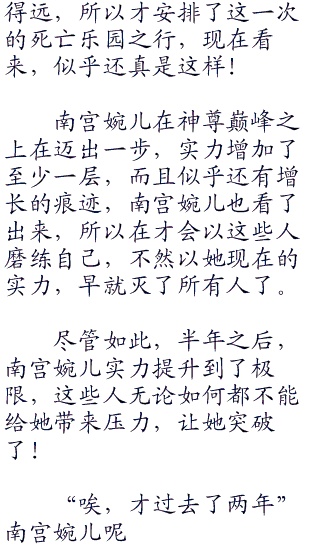 得远，所以才安排了这一次
的死亡乐园之行，现在看
来，似乎还真是这样！
南宫婉儿在神尊巅峰之
上在迈出一步，实力增加了
至少一层，而且似乎还有增
长的痕迹，南宫婉儿也看了
出来，所以在才会以这些人
磨练自己，不然以她现在的
实力，早就灭了所有人了。
尽管如此，半年之后，
南宫婉儿实力提升到了极
限，这些人无论如何都不能
给她带来压力，让她突破
了！
“唉，才过去了两年”
南宫婉儿呢